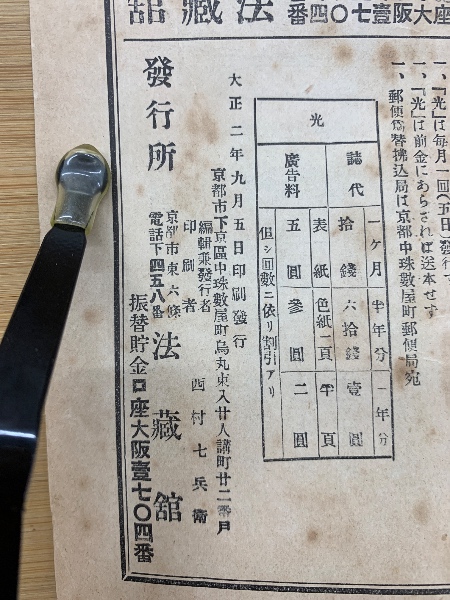 法藏館
座大阪壹七〇四番
一、「光」は每月一回(五日)發行す
一、「光」は前金にあらされば送本せず
一、郵便爲替拂込局は京都中珠數屋町郵便局宛
光
誌代 一ヶ月 半年分 一年分
拾錢 六拾錢 壹圓
廣告料 表紙 色紙一頁 半頁
五圓 參圓 二圓
但シ回數ニ依リ割引アリ
大正二年九月五日印刷發行
京都市下京區中珠數屋町烏丸東入廿人講町廿二番戶
編輯兼發行者
印刷者 西村七兵衞
發行所 京都市東六條 法藏館
電話下四五八番
振替貯金口座大阪壹七〇四番